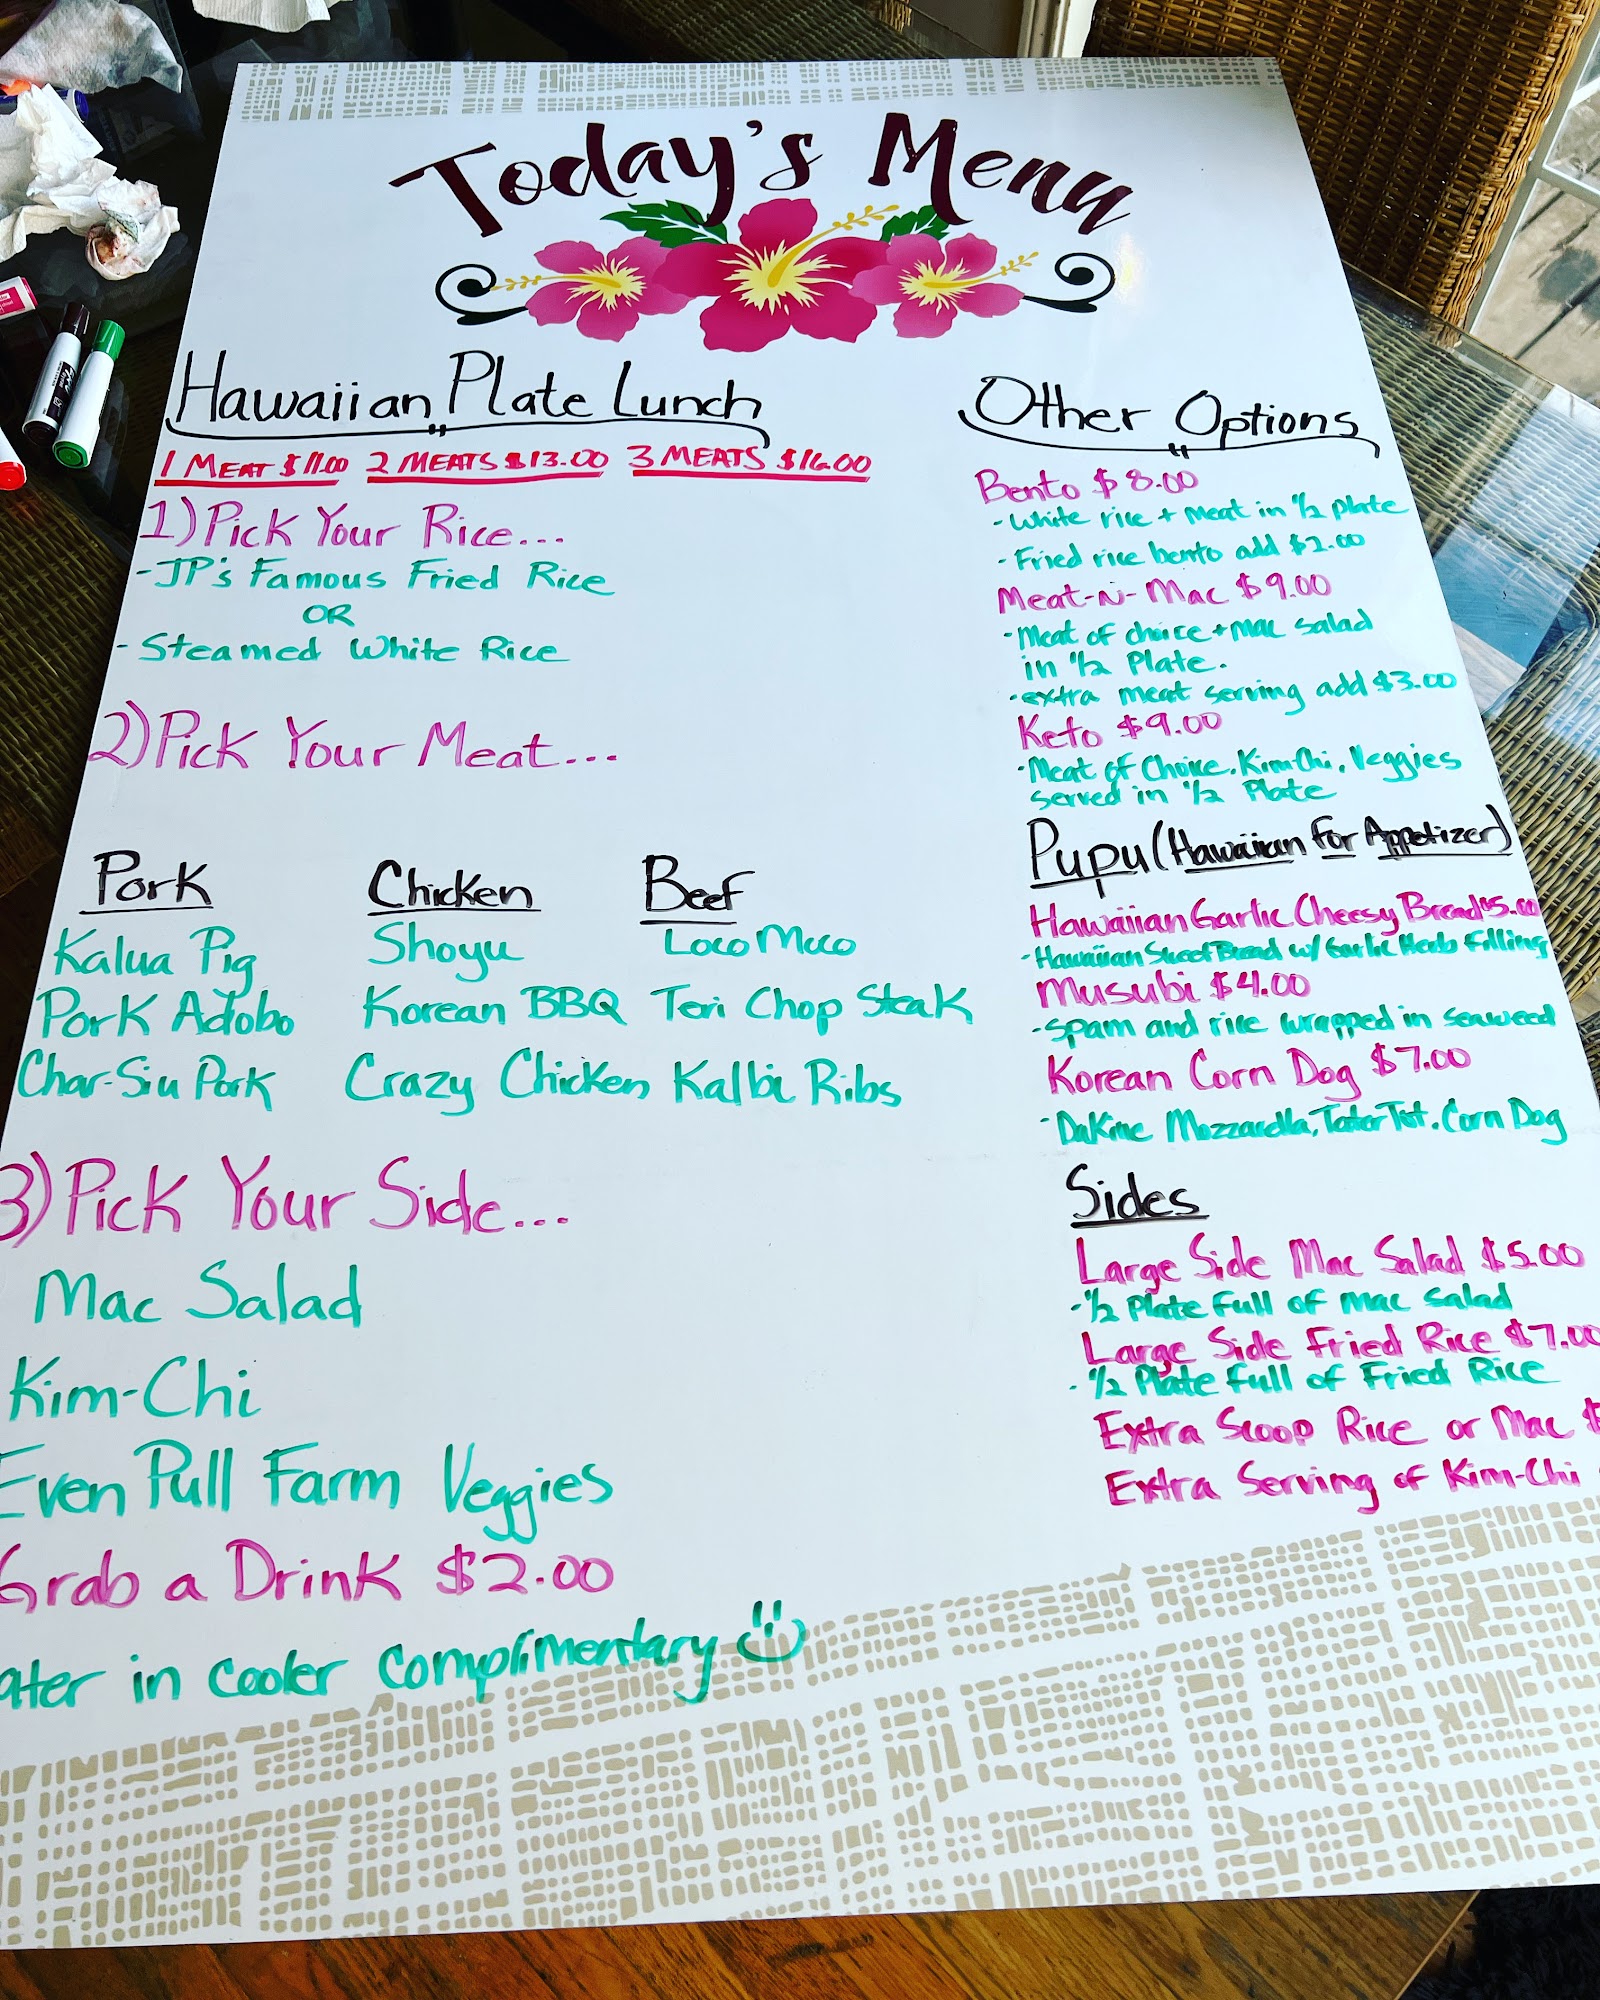 Today's Menu
Hawaiian Plate Lunch
1 MEAT $11.00 2 MEATS $13.00 3 MEATS $16.00
1) Pick Your Rice...
- JP's Famous Fried Rice
OR
- Steamed White Rice
2) Pick Your Meat...
Pork
Kalua Pig
Pork Adobo
Char-Siu Pork
Chicken
Shoyu
Korean BBQ
Crazy Chicken
Beef
Loco Moco
Teri Chop Steak
Kalbi Ribs
3) Pick Your Side...
Mac Salad
Kim-Chi
Even Pull Farm Veggies
Grab a Drink $2.00
ater in cooler complimentary
Other Options
Bento $8.00
- White rice + meat in 1/2 plate
- Fried rice bento add $2.00
Meat-N-Mac $9.00
- Meat of choice + mac salad
in 1/2 Plate.
- extra meat serving add $3.00
Keto $9.00
- Meat of Choice, Kim-Chi, Veggies
served in 1/2 Plate
Pupu (Hawaiian For Appetizer)
Hawaiian Garlic Cheesy Bread $5.00
- Hawaiian Sweet Bread w/ Garlic Herb Filling
Musubi $4.00
- Spam and rice wrapped in seaweed
Korean Corn Dog $7.00
- DaKine Mozzarella, Tater Tot, Corn Dog
Sides
Large Side Mac Salad $5.00
- 1/2 Plate Full of Mac Salad
Large Side Fried Rice $7.00
- 1/2 Plate Full of Fried Rice
Extra Scoop Rice or Mac $
Extra Serving of Kim-Chi